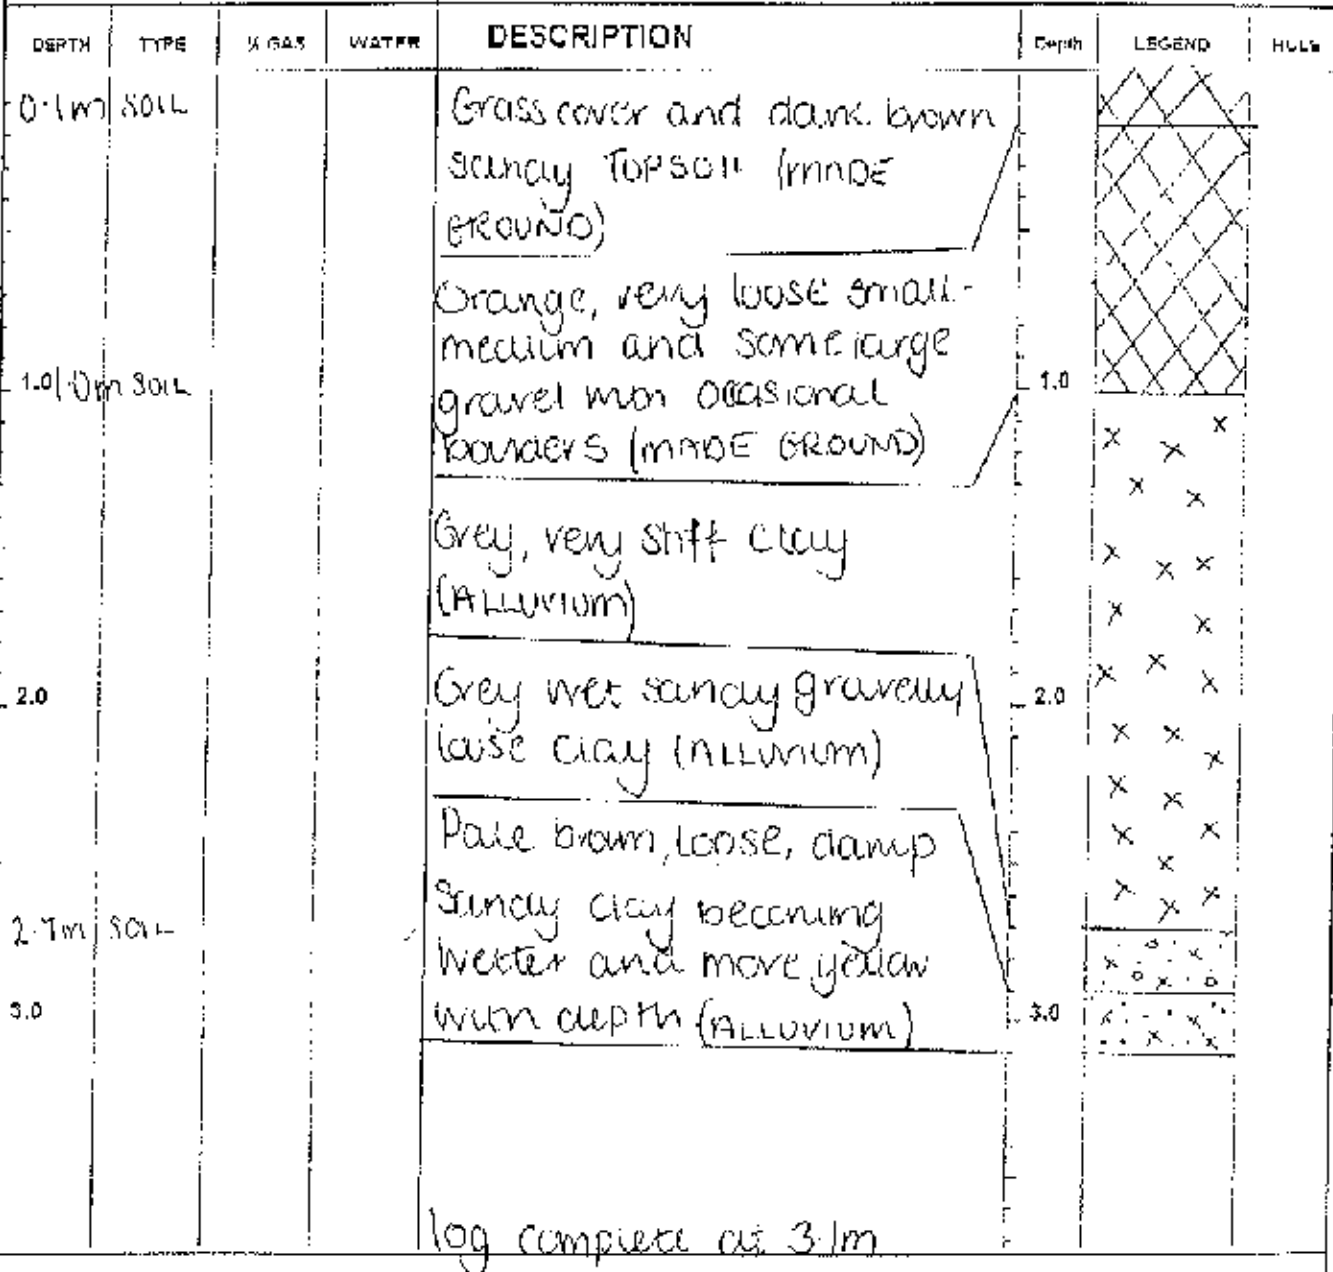 DEPTH TYPE % GAS WATER DESCRIPTION Depth LEGEND HOLE
0.1m SOIL
Grass cover and dark brown
sandy TOPSOIL (MADE
GROUND)
Orange, very loose small-
medium and some large
1.0 1.0m SOIL
1.0
gravel with occasional
boulders (MADE GROUND)
Grey, very stiff clay
(ALLUVIUM)
Grey wet sandy gravelly
2.0
2.0
loose clay (ALLUVIUM)
Pale brown, loose, damp
sandy clay becoming
2.7m SOIL
wetter and more yellow
3.0
with depth (ALLUVIUM)
3.0
log complete at 3.1m